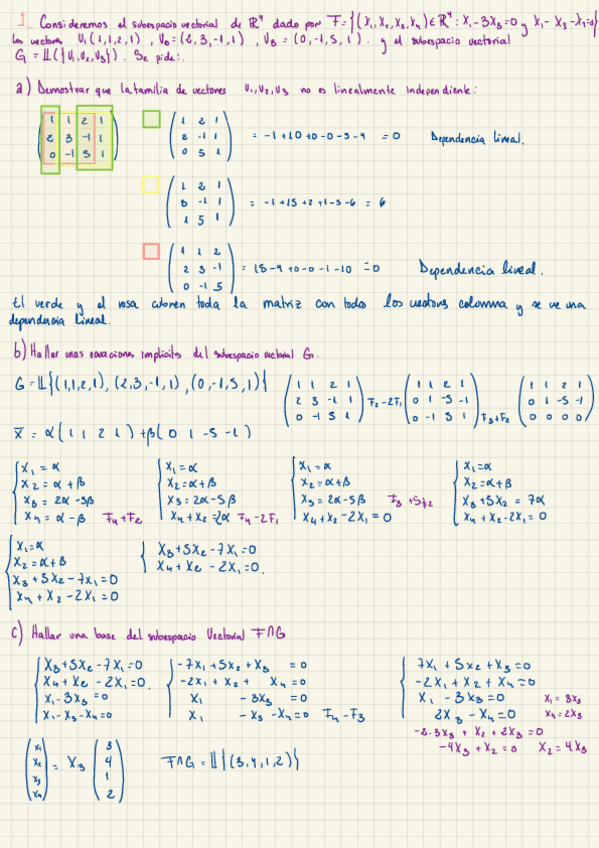 1. Consideremos el subespacio vectorial de ℝ⁴ dado por F={(x₁,x₂,x₃,x₄)∈ℝ⁴: x₁-3x₃=0 y x₁-x₃-x₄=0}
los vectores v₁(1,1,2,1), v₂=(2,3,-1,1), v₃=(0,-1,5,1). y el subespacio vectorial
G=𝕃({v₁,v₂,v₃}). Se pide:.
a) Demostrar que la familia de vectores v₁,v₂,v₃ no es linealmente independiente:
1 1 2 1
2 3 -1 1
0 -1 5 1
1 2 1
2 -1 1
0 5 1
= -1+10+0-0-5-4 = 0 Dependencia lineal.
1 2 1
3 -1 1
-1 5 1
= -1+15+2+1-5-6 = 6
1 1 2
2 3 -1
0 -1 5
= 15-4+0-0-1-10=0 Dependencia lineal.
El verde y el rosa cubren toda la matriz con todos los vectores columna y se ve una
dependencia lineal.
b) Hallar unas ecuaciones implícitas del subespacio vectorial G.
G=𝕃{(1,1,2,1),(2,3,-1,1),(0,-1,5,1)}
1 1 2 1
2 3 -1 1
0 -1 5 1
F₂-2F₁
1 1 2 1
0 1 -5 -1
0 -1 5 1
F₃+F₂
1 1 2 1
0 1 -5 -1
0 0 0 0
x̄ = α(1 1 2 1)+β(0 1 -5 -1)
x₁=α
x₂=α+β
x₃=2α-5β
x₄=α-β F₄+F₂
x₁=α
x₂=α+β
x₃=2α-5β
x₄+x₂=2α F₄-2F₁
x₁=α
x₂=α+β
x₃=2α-5β F₃+5F₂
x₄+x₂-2x₁=0
x₁=α
x₂=α+β
x₃+5x₂=7α
x₄+x₂-2x₁=0
x₁=α
x₂=α+β
x₃+5x₂-7x₁=0
x₄+x₂-2x₁=0
x₃+5x₂-7x₁=0
x₄+x₂-2x₁=0.
c) Hallar una base del subespacio Vectorial F∩G
x₃+5x₂-7x₁=0
x₄+x₂-2x₁=0.
x₁-3x₃=0
x₁-x₃-x₄=0
-7x₁+5x₂+x₃ =0
-2x₁+x₂+ x₄=0
x₁ -3x₃ =0
x₁ -x₃ -x₄=0 F₄-F₃
7x₁+5x₂+x₃=0
-2x₁+x₂+x₄=0
x₁-3x₃=0 x₁=3x₃
2x₃-x₄=0 x₄=2x₃
-2·3x₃+x₂+2x₃=0
-4x₃+x₂=0 x₂=4x₃
x₁
x₂
x₃
x₄
= x₃
3
4
1
2
F∩G=𝕃{(3,4,1,2)}